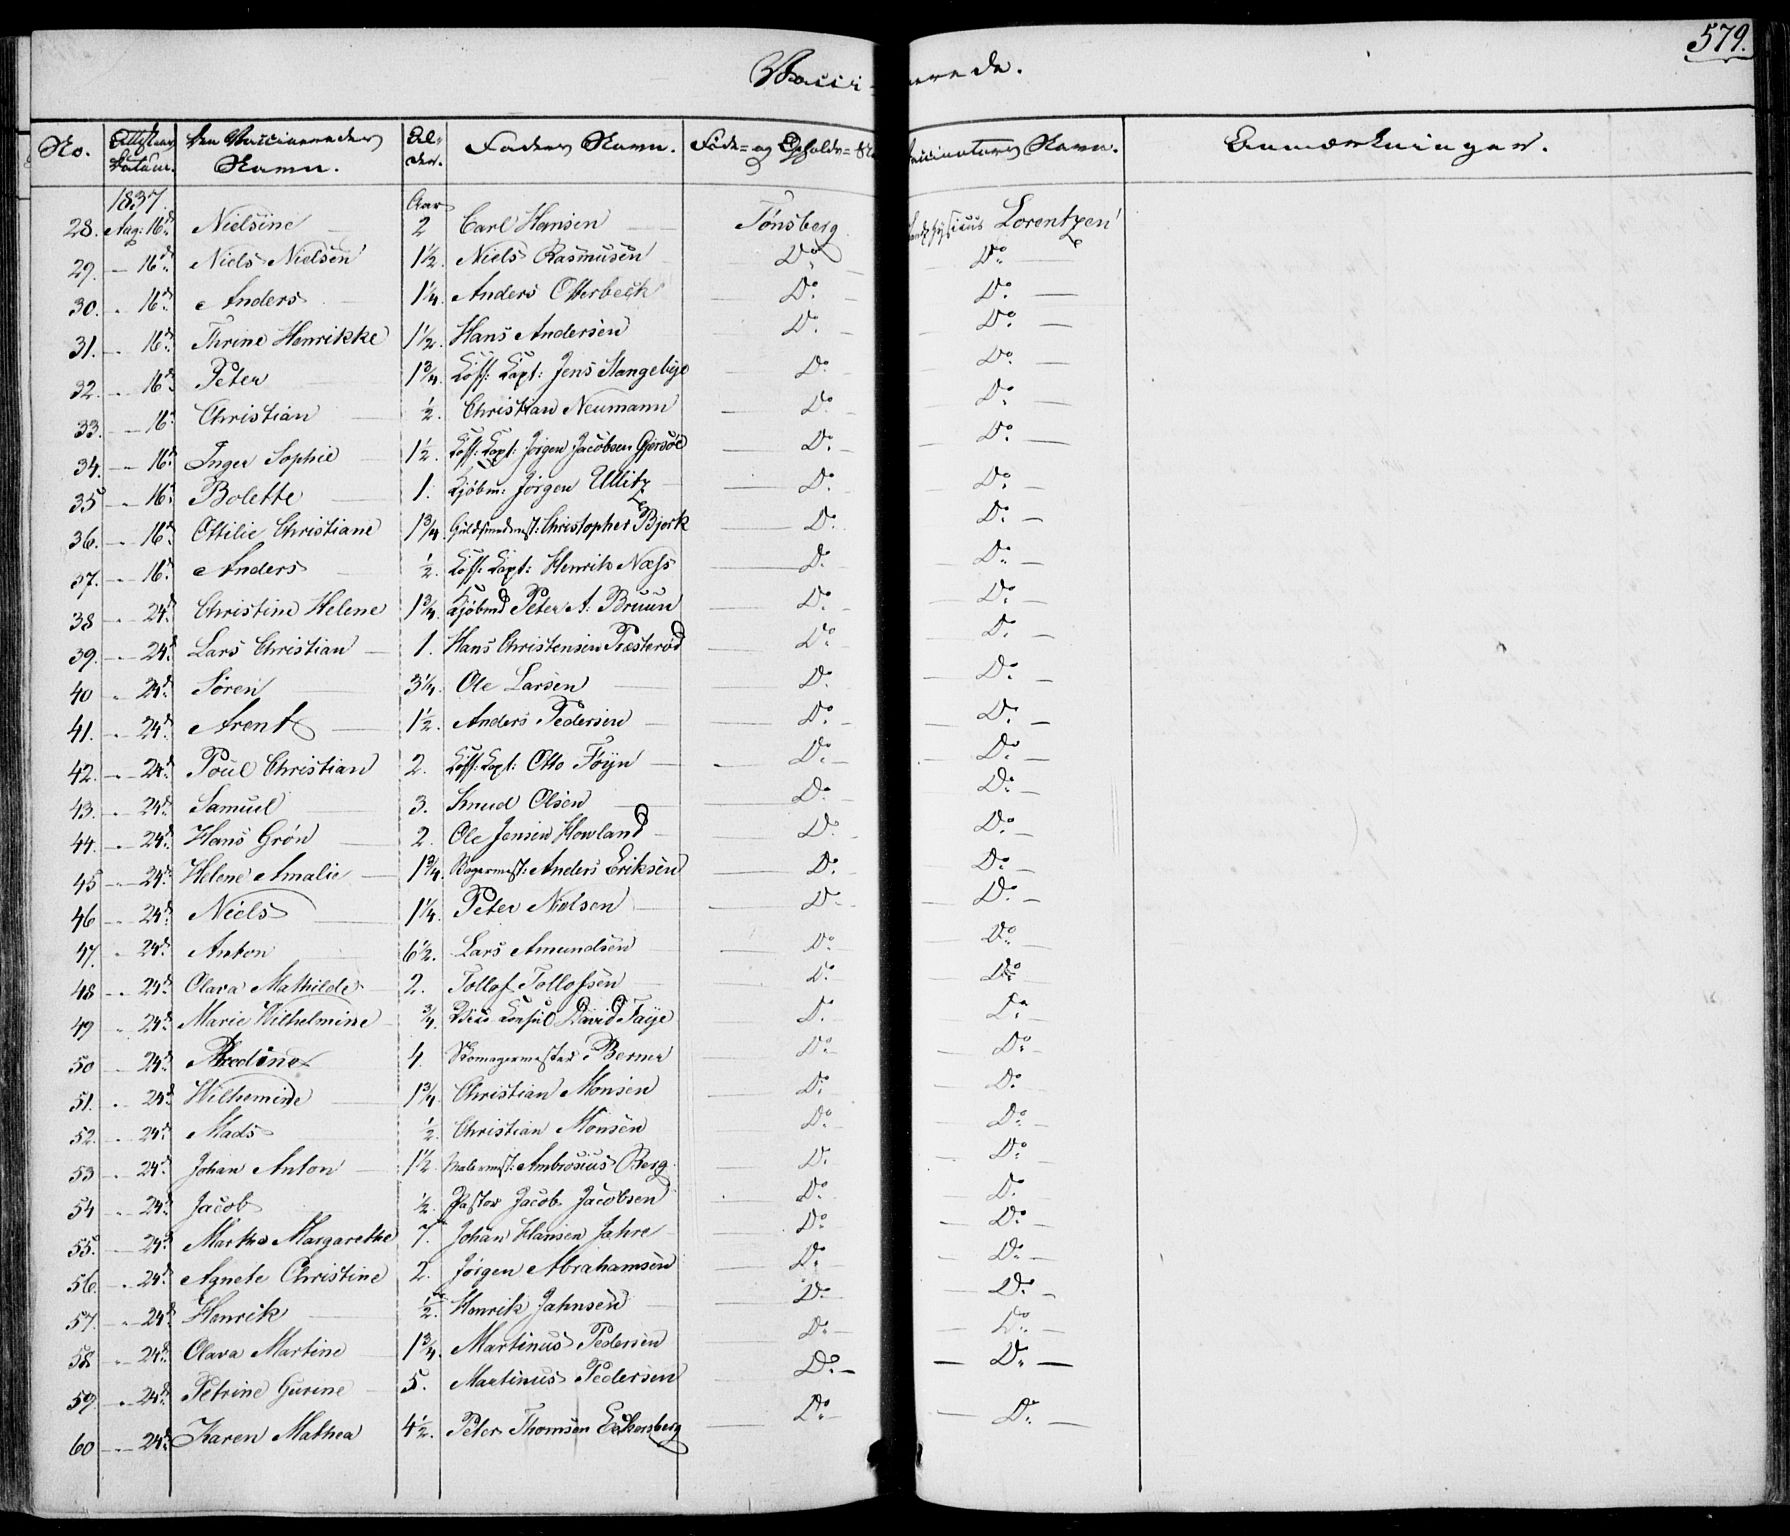 579.
Vacci- nerede.
No. Attestens Datum. Den Vaccineredes Navn. Al- der. Faders Navn. Føde- og Opholds- St Vaccinators Navn. Anmærkninger.
1837. Aar
28. Aug: 16d. Nielsine 2 Carl Hansen Tønsberg Landphysicus Lorentzen
29. - 16d. Niels Nielsen 1½. Niels Rasmusen Do Do
30. - 16d. Anders 1¼. Anders Otterbeck Do. Do.
31. - 16d. Thrine Henrikke 1½. Hans Andersen Do. Do.
32. - 16d. Peter 1¾. Koff: Kapt: Jens Stangebye Do. Do.
33. - 16d. Christian ½. Christian Neumann Do. Do.
34. - 16d. Inger Sophie 1½. Koff: Kapt: Jørgen Jacobsen Gjersøe Do. Do.
35 - 16d. Bolette 1. Kjøbm: Jørgen Ullitz Do. Do.
36. - 16d. Ottilie Christiane 1¾. Guldsmedmest: Christopher Bjork Do. Do.
37. - 16d. Anders ½. Koff: Kapt: Henrik Næss Do. Do.
38 - 24d. Christine Helene 1¾. Kjøbmd Peter A. Bruun Do. Do.
39. - 24d. Lars Christian 1. Hans Christensen Præsterød Do. Do.
40 - 24d. Søren 3¼. Ole Larsen Do. Do.
41. - 24d. Arent 1½. Anders Pedersen Do. Do.
42. - 24d. Poul Christian 2. Koff: Kapt: Otto Føyn Do. Do.
43. - 24d. Samuel 3. Knud Olsen Do. Do.
44. - 24d. Hans Grøn 2. Ole Jensen Howland Do. Do.
45 - 24d. Helene Amalie 1¾. Bagermest: Anders Eriksen Do. Do.
46 - 24d. Niels 1¼. Peter Nielsen Do. Do.
47. - 24d. Anton 6½. Lars Amundsen Do. Do.
48 - 24d. Olava Mathilde 2. Tollof Tollofsen Do. Do.
49 - 24d. Marie Wilhelmine ¾. Vice Konsul David Faye Do. Do.
50 - 24d. 4. Skomagermester Berner Do. Do.
51. - 24d. Wilhemine 1¾. Christian Monsen Do. Do.
52. - 24d. Mads ½. Christian Monsen Do. Do.
53 - 24d. Johan Anton 1½. Malermest: Ambrosius Berg Do. Do.
54 - 24d. Jacob ½. Pastor Jacob Jacobsen Do. Do.
55. - 24d. Martha Margarethe 7. Johan Hansen Jahre Do. Do.
56. - 24d. Agnete Christine 2. Jørgen Abrahamsen Do. Do.
57. - 24d. Henrik ½. Henrik Jahnsen Do. Do.
58 - 24d. Olava Martine 1¾. Martinus Pedersen Do. Do.
59. - 24d. Petrine Gurine 5. Martinus Pedersen Do. Do.
60 - 24d. Karen Mathea 4½. Peter Thomsen Eckersberg Do. Do.